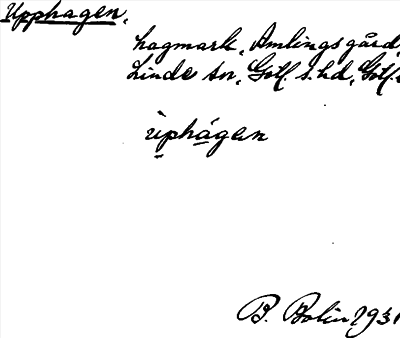 Upphagen.
hagmark, Amlings gård,
Linde sn, Gotl. s. hd, Gotl.
ùphágen
B. Bolin 1931